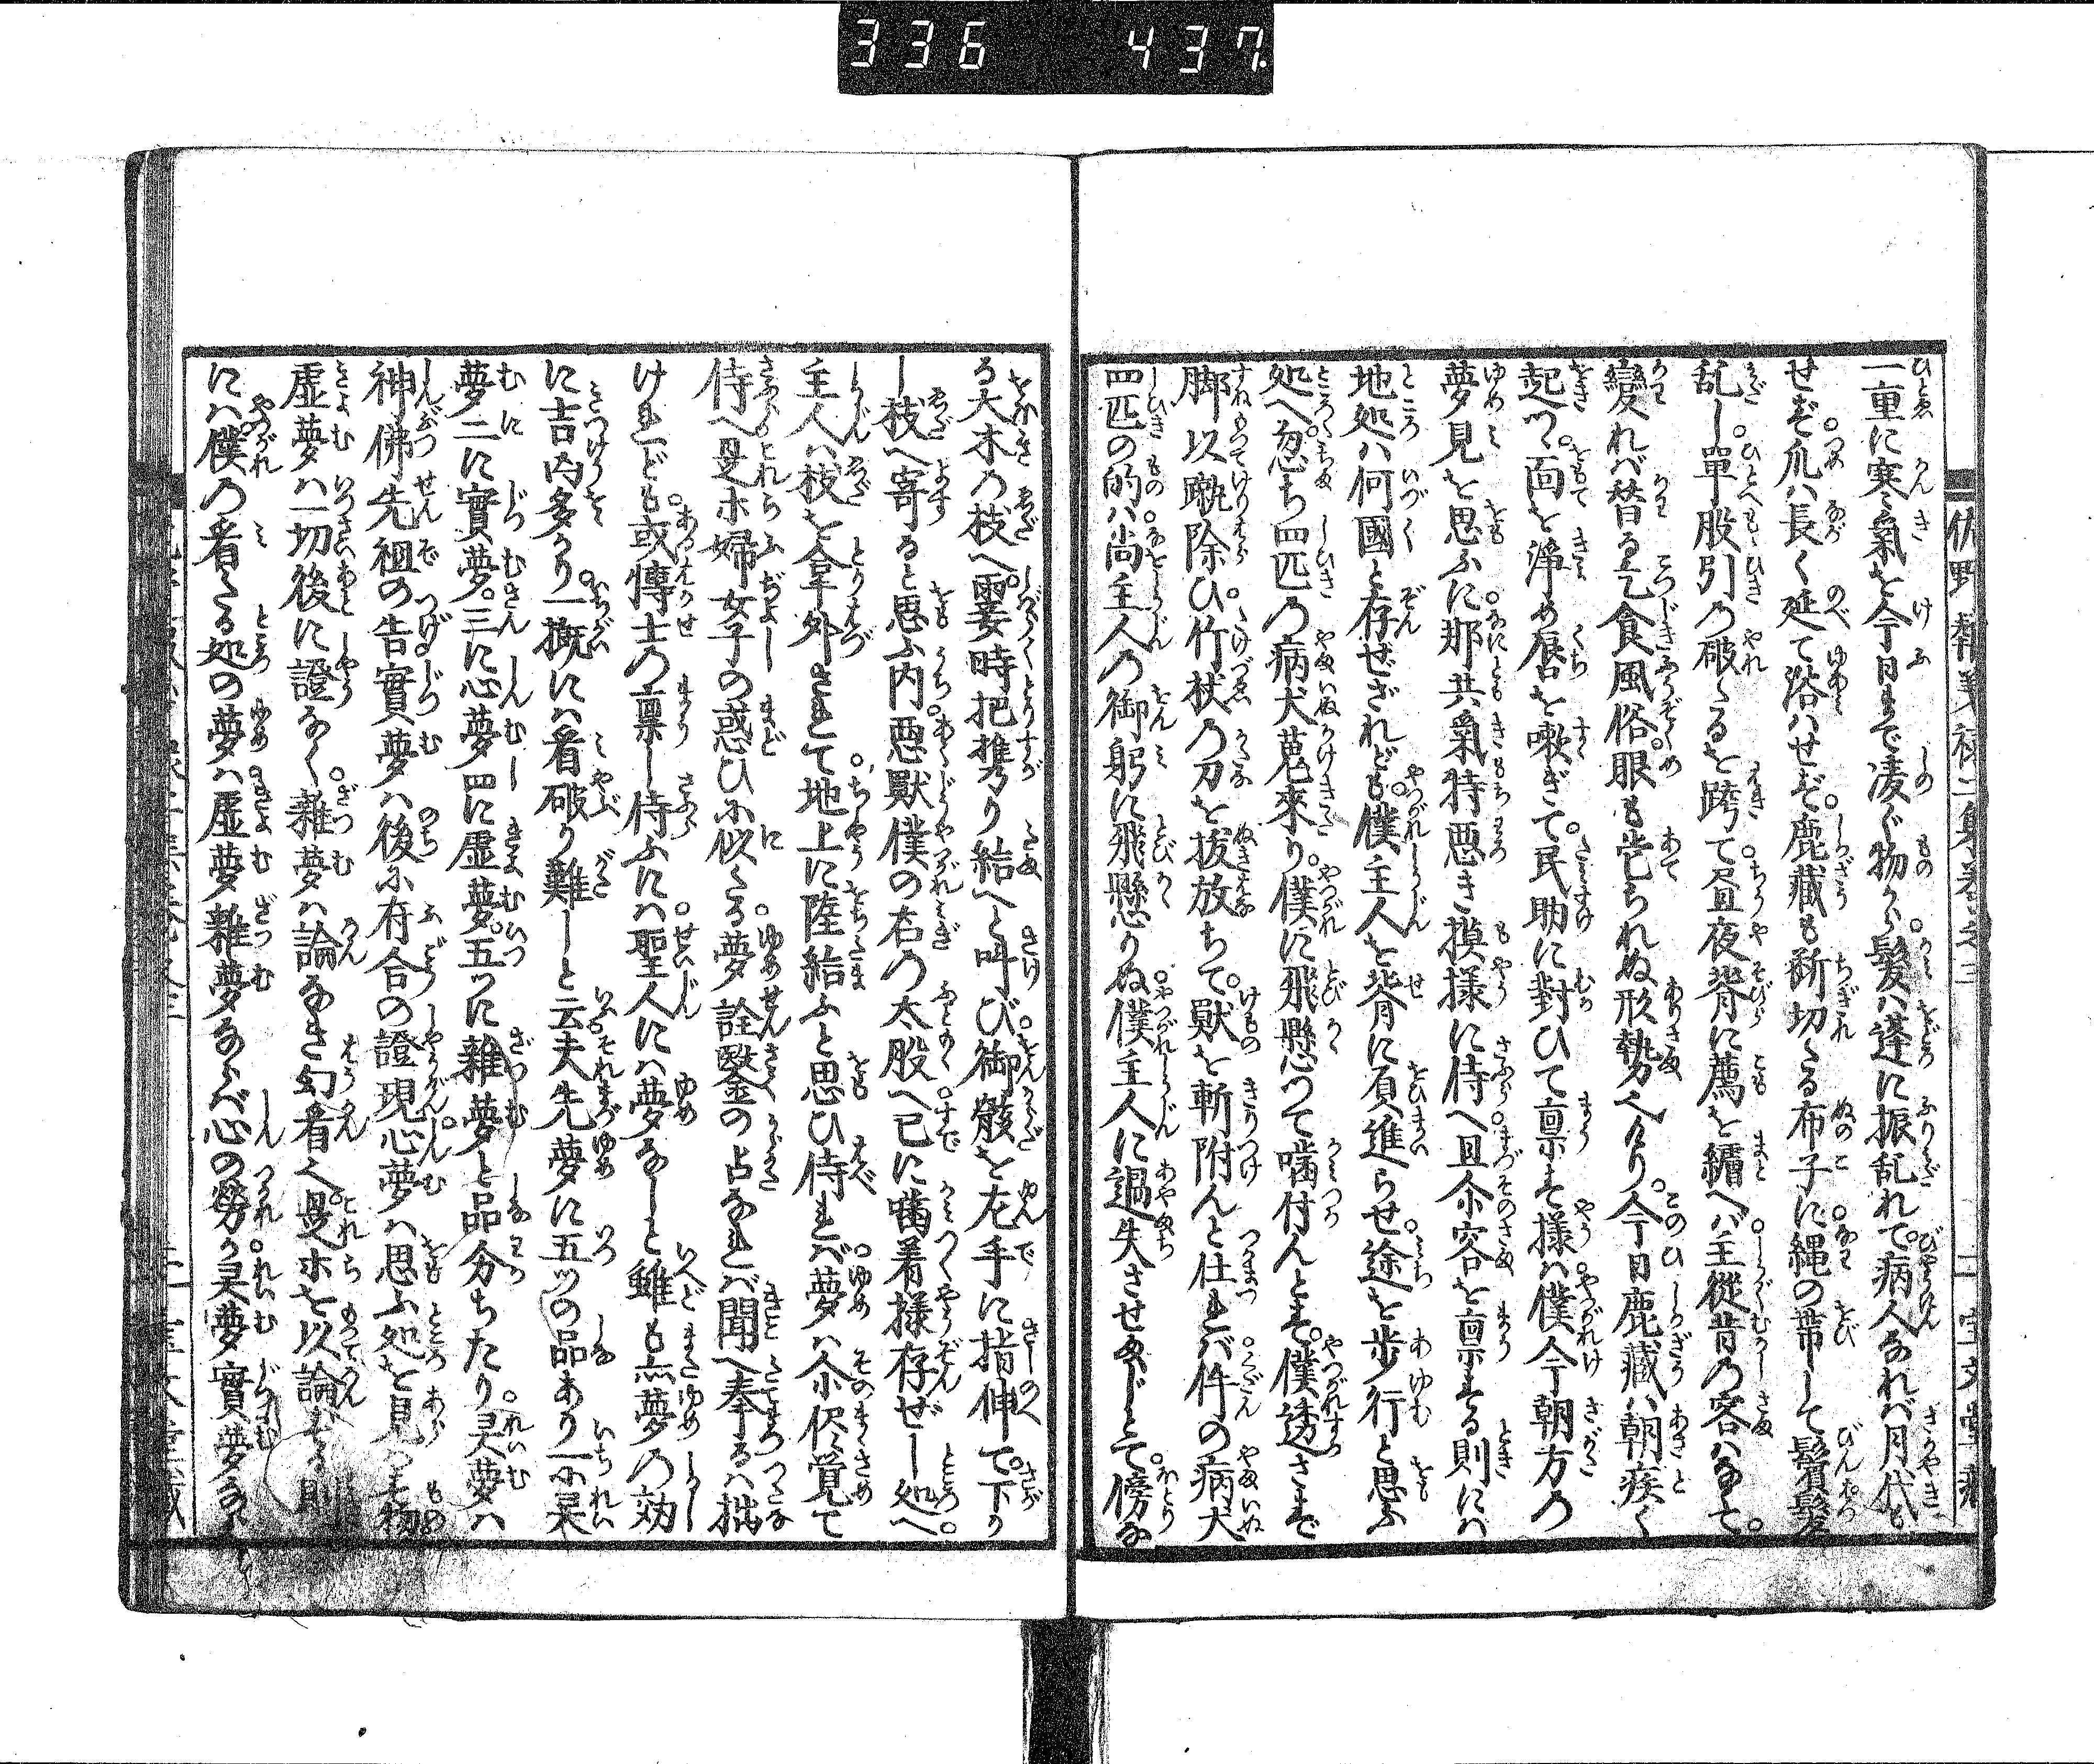 336 437.
一重に寒氣を今日まで凌ぐ物から髪は蓬に振乱れて。病人なれば月代も
せず。爪は長く延て浴はせず。鹿藏も斬切たる布子に。縄の帯して鬢髪
乱し。單股引の破たるを跨て。昼夜脊に薦を纏へば。主從昔の容はなくて。
變れば替る乞食風俗。眼も当られぬ形勢なり。今日鹿藏は朝疾く
起つゝ。面を淨め唇を嗽ぎて。民助に對ひて禀す樣。僕今朝方の
夢見を思ふに。那共氣持悪き摸樣に侍へ。且尒容を禀する則には
地処は何國と存ぜざれども。僕主人を脊に負進らせ。途を歩行と思ふ
処へ。忽ち四匹の病犬蒐來り。僕に飛懸つて噛付んとす。僕透さず
脚以蹴除ひ。竹杖の刀を抜放ちて。獣を斬附んと仕れば。件の病犬
四匹の的は。尚主人の御躬に飛懸りぬ。僕主人に過失させぬじとて。傍な
る大木の枝へ。霎時把携り給へと叫び。御骸を左手に指伸て。下り
し枝へ寄ると思ふ内。悪獸僕の右の太股へ。已に噛着樣存ぜし処へ。
主人は枝を拿外されて。地上に陸給ふと思ひ侍れば。夢は尒侭覚て
侍へ。是ホ婦女子の惑ひに似たる。夢詮鑿の占なれば。聞へ奉るは拙
けれども。或慱士の禀し侍ふには。聖人には夢なしと雖も。亦夢の効
に吉凶多かり。一概には看破り難しと云。夫先夢に五ッの品あり。一に灵
夢二に實夢。三に心夢四に虚夢。五ッに雜夢と品分ちたり。灵夢は
神佛先祖の告。實夢は後に符合の證現。心夢は思ふ処を見つる物
虚夢は一切後に證なく。雜夢は論なき幻看なり。是ホを以論ずる則
には。僕の看たる処の夢は。虚夢雜夢ならずば心の勞か。灵夢實夢なら